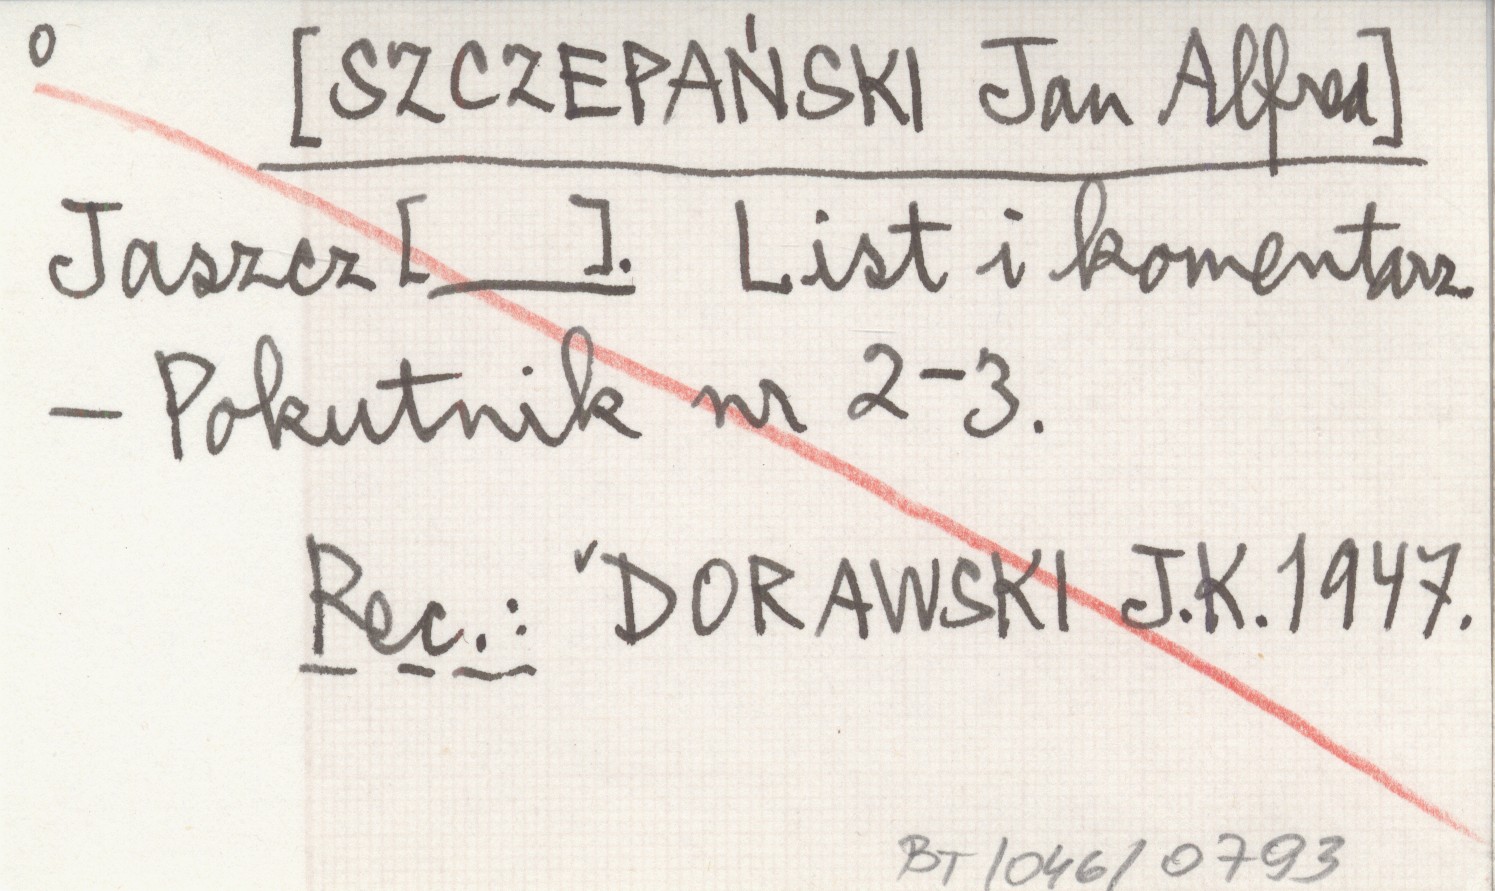 o [SZCZEPAŃSKI Jan Alfred]
Jaszcz [___]. List i komentarz.
– Pokutnik nr 2–3.
Rec.: ✓DORAWSKI J.K. 1947.
BT/046/0793